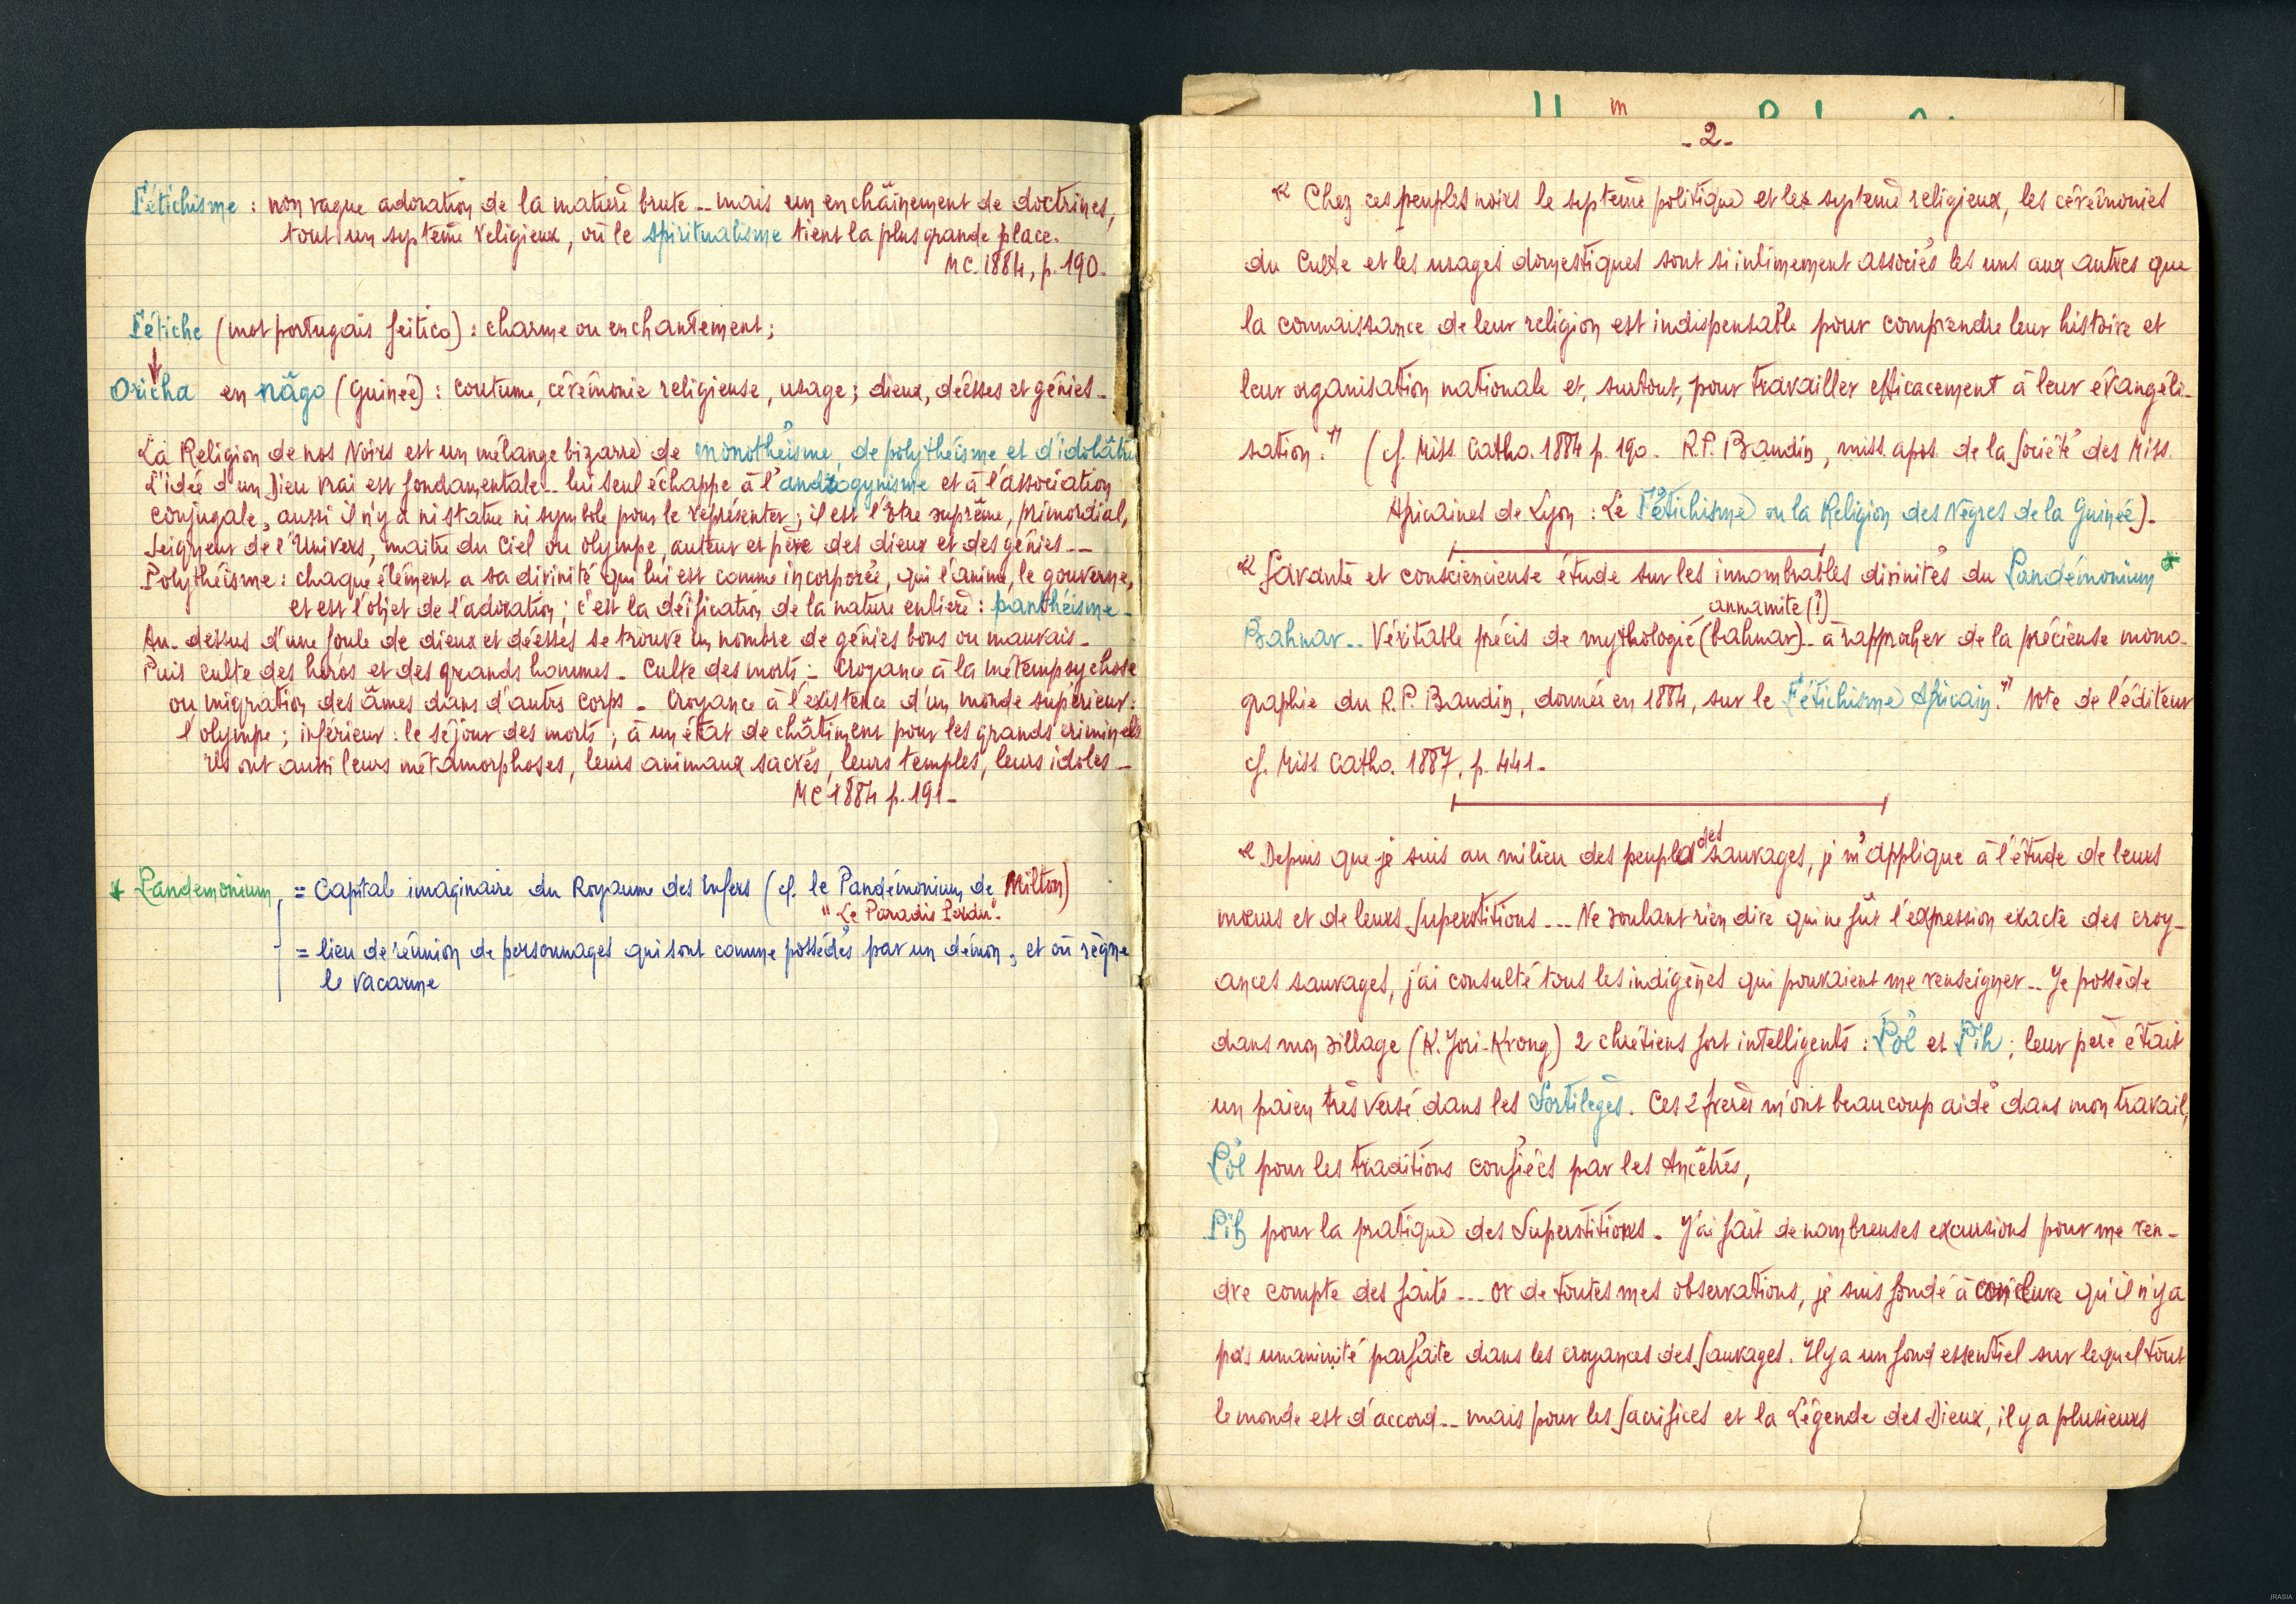 Fétichisme : non vague adoration de la matière brute -- mais un enchaînement de doctrines,
tout un système religieux, où le spiritualisme tient la plus grande place.
MC. 1884, p. 190.
Fétiche (mot portugais feitico) : charme ou enchantement ;
Oricha en nâgo (Guinée) : coutume, cérémonie religieuse, usage ; dieux, déesses et génies -
La Religion de nos Noirs est un mélange bizarre de monothéisme, de polythéisme et d'idolâtrie
L'idée d'un Dieu vrai est fondamentale -- lui seul échappe à l'androgynisme et à l'association
conjugale, aussi il n'y a ni statue ni symbole pour le représenter ; il est l'Etre suprême, primordial,
Seigneur de l'Univers, maître du Ciel ou olympe, auteur et père des dieux et des génies --
Polythéisme : chaque élément a sa divinité qui lui est comme incorporée, qui l'anime, le gouverne,
et est l'objet de l'adoration ; c'est la déification de la nature entière : panthéisme -
Au-dessus d'une foule de dieux et déesses se trouve un nombre de génies bons ou mauvais -
Puis culte des héros et des grands hommes - Culte des morts - Croyance à la métempsychose
ou migration des âmes dans d'autres corps - Croyance à l'existence d'un monde supérieur :
l'olympe ; inférieur : le séjour des morts ; à un état de châtiment pour les grands criminels
ils ont aussi leurs métamorphoses, leurs animaux sacrés, leurs temples, leurs idoles -
MC 1884 p. 191 -
* Pandemonium = Capitale imaginaire du Royaume des Enfers (cf. le Pandémonium de Milton)
"Le Paradis Perdu".
= lieu de réunion de personnages qui sont comme possédés par un démon, et où règne
le vacarme
- 2 -
« Chez ces peuples noirs le système politique et le système religieux, les cérémonies
du Culte et les usages domestiques sont si intimement associés les uns aux autres que
la connaissance de leur religion est indispensable pour comprendre leur histoire et
leur organisation nationale et, surtout, pour travailler efficacement à leur évangéli-
sation." (cf. Miss. Catho. 1884 p. 190. R.P. Baudin, miss. apos. de la Société des Miss.
Africaines de Lyon : Le Fétichisme ou la Religion des Nègres de la Guinée).
« Savante et consciencieuse étude sur les innombrables divinités du Pandémonium *
annamite (!)
Bahnar -- Véritable précis de mythologie (bahnar) -- à rapprocher de la précieuse mono-
graphie du R.P. Baudin, donnée en 1884, sur le Fétichisme Africain." Note de l'éditeur
cf. Miss Catho. 1887, p. 441 -
« Depuis que je suis au milieu des peuplades sauvages, je m'applique à l'étude de leurs
mœurs et de leurs Superstitions --- Ne voulant rien dire qui ne fût l'expression exacte des croy-
ances sauvages, j'ai consulté tous les indigènes qui pouvaient me renseigner -- Je possède
dans mon village (K. Jori-Krong) 2 chrétiens fort intelligents : Pôl et Pih ; leur père était
un païen très versé dans les Sortilèges. Ces 2 frères m'ont beaucoup aidé dans mon travail,
Pôl pour les traditions confiées par les Ancêtres,
Pih pour la pratique des Superstitions - J'ai fait de nombreuses excursions pour me ren-
dre compte des faits --- or de toutes mes observations, je suis fondé à conclure qu'il n'y a
pas unanimité parfaite dans les croyances des Sauvages. Il y a un fond essentiel sur lequel tout
le monde est d'accord -- mais pour les Sacrifices et la Légende des Dieux, il y a plusieurs
JRASIA